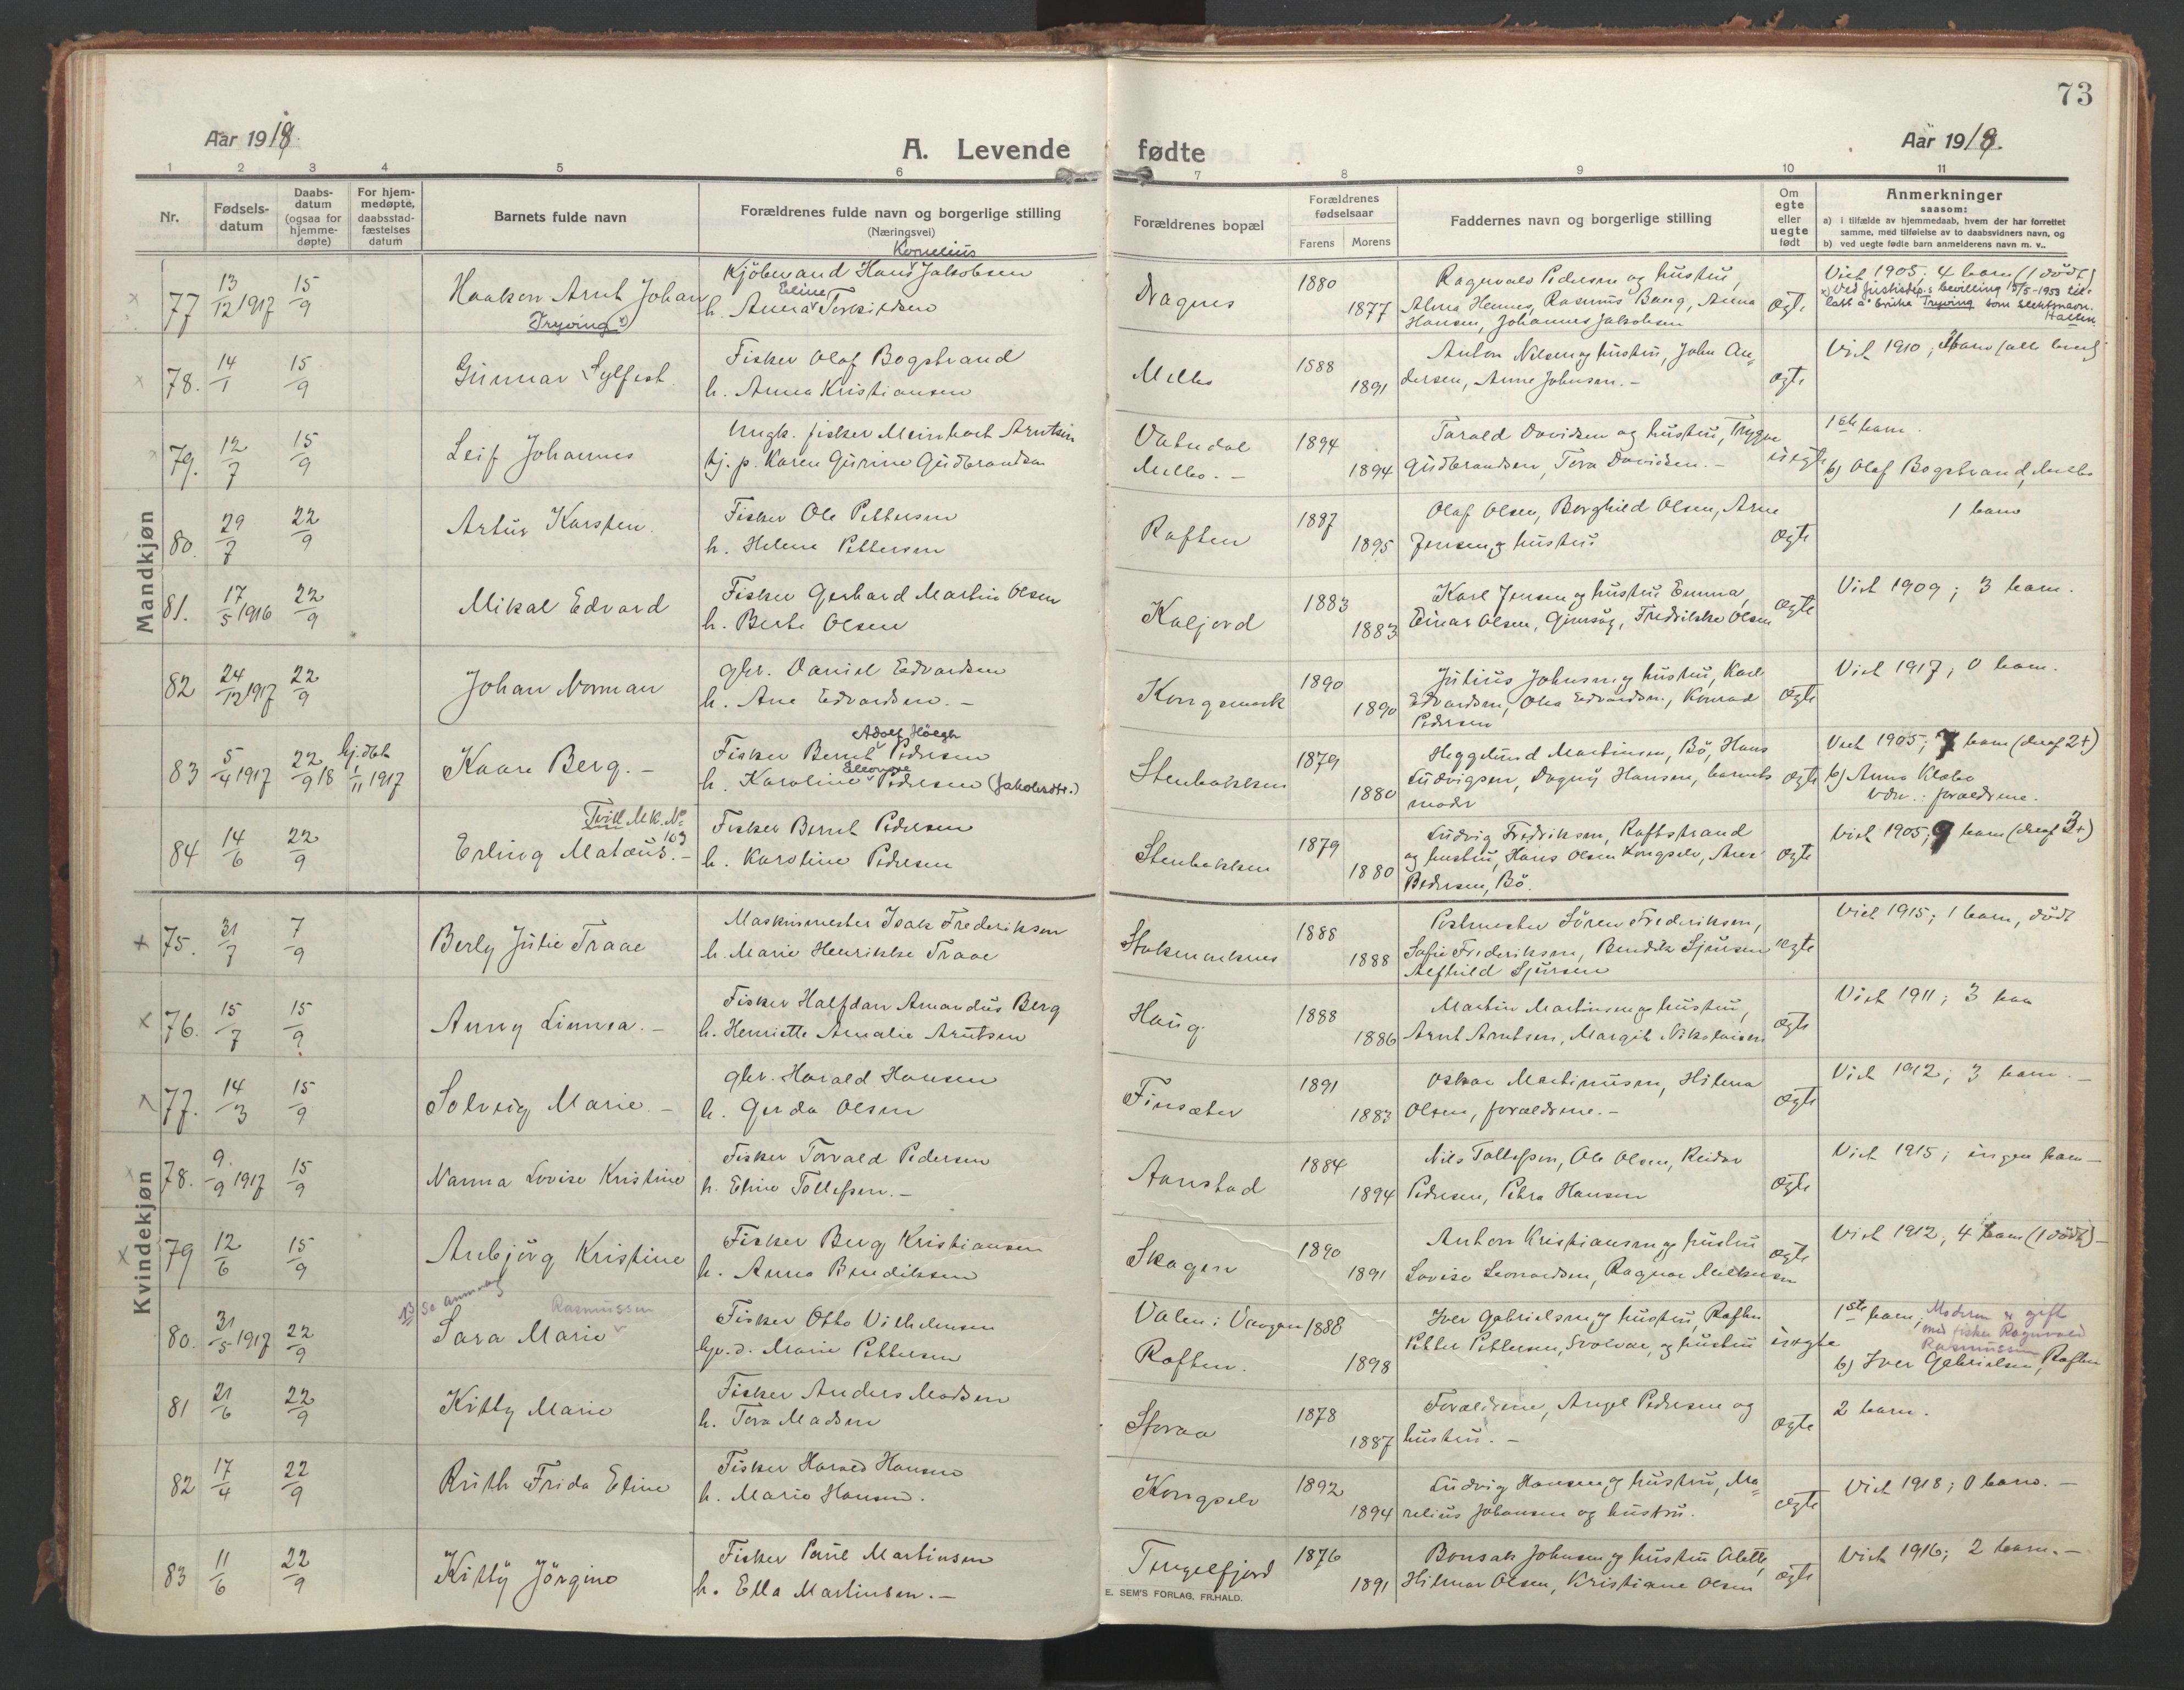 73
Aar 1918.
A. Levende
fødte
Aar 1918.
1 2 3 4 5 6 7 8 9 10 11
Nr.
Fødsels-
datum
Daabs-
datum
(ogsaa for
hjemme-
døpte)
For hjem-
medøpte,
daabsstad-
fæstelses
datum
Barnets fulde navn
Forældrenes fulde navn og borgerlige stilling
(Næringsvei)
Forældrenes bopæl
Forældrenes
fødselsaar
Farens Morens
Faddernes navn og borgerlige stilling
Om
egte
eller
uegte
født
Anmerkninger
saasom:
a) i tilfælde av hjemmedaab, hvem der har forrettet
samme, med tilføielse av to daabsvidners navn, og
b) ved uegte fødte barn anmelderens navn m. v..
Mandkjøn
77 13/12 1917 15/9 Haakon Arnt Johan
Tryving x)
Kornelius
Kjöbmand Hans Jakobsen
Eline
h. Anna Torkildsen
Dragnes 1880 1877
Ragnvald Pedersen og hustru,
Alma Hennes, Rasmus Bang, Anna
Hansen, Johannes Jakobsen
Ægte
Viet 1905; 4 barn (1 dödt)
x) Ved Justisdep.s bevilling 5/5-1953 til-
latt å bruke Tryving som slektsnavn.
78. 14/1 15/9 Gunnar Sylfest.
Fisker Olaf Bogstrand
h. Anna Kristiansen
Melbo 1888 1891
Anton Nilsen og hustru, John An-
dersen, Anne Johnsen. -
Ægte
Viet 1910;
79. 12/7 15/9 Leif Johannes
Ungk. fisker Meinhart Arntsen
tj. p. Karen Gurine Gudbrandsen
Vatndal
Melbo. - 1894 1894
Tarald Davidsen og hustru, Trygve
Gudbrandsen, Tora Davidsen. -
uegte
1ste barn.
b) Olaf Bogstrand, Melbo
80. 29/7 22/9 Artur Karsten.
Fisker Ole Pettersen
h. Helene Pettersen
Raften 1887 1895
Olaf Olsen, Borghild Olsen, Arne
Jensen og hustru
Ægte
1 barn
81. 17/5 1916 22/9 Mikal Edvard
Fisker Gerhard Martin Olsen
h. Berte Olsen
Kaljord 1883 1883
Karl Jensen og hustru Emma,
Einar Olsen, Gimsöy, Fredrikke Olsen
Ægte
Viet 1909; 3 barn.
82 24/12 1917 22/9 Johan Norman
gbr. Daniel Edvardsen
h. Ane Edvardsen. -
Kongsmark 1890 1890
Julius Johnsen og hustru, Karl
Edvardsen, Olea Edvardsen, Konrad
Pedersen
Ægte
Viet 1917; 0 barn.
83 5/4 1917 22/9 18 hj.döbt 1/11 1917 Kaare Berg. -
Adolf Höegh
Fisker Bernt Pedersen
Eleonore
h. Karoline Pedersen (Jakobsdtr.)
Stenbakken 1879 1880
Heggelund Martinsen, Bö, Hans
Ludvigsen, Dagny Hansen, barnets
moder
Ægte
Viet 1905; 7 barn (deraf 2+)
b) Anna Klæbo
vidn.: forældrene.
84 14/6 22/9 Tvill M.K. No 103
Erling Matæus. -
Fisker Bernt Pedersen
h. Karoline Pedersen
Stenbakken 1879 1880
Ludvig Fredriksen, Raftstrand
og hustru, Hans Olsen Kongselv, Anna
Pedersen, Bö.
Ægte
Viet 1905; 9 barn (deraf 3+)
Kvindekjøn
75. 31/7 7/9 Berly Julie Traae
Maskinmester Isak Frederiksen
h. Marie Henrikke Traae
Stokmarknes 1888 1888
Postmester Sören Frederiksen,
Sofie Frederiksen, Bendik Sjursen
Alfhild Sjursen
Ægte
Viet 1915; 1 barn, dödt
76. 15/7 15/9 Anny Linnea. -
Fisker Halfdan Amandus Berg
h. Henriette Amalie Arntsen
Haug 1888 1886
Martin Martinsen og hustru,
Arnt Arntsen, Margit Nikolaisen
Ægte
Viet 1911; 3 barn
77. 14/3 15/9 Solveig Marie. -
gbr. Harald Hansen
h. Gerda Olsen
Finsæter 1891 1883
Oskar Martinusen, Helena
Olsen, forældrene. -
Ægte
Viet 1912; 3 barn. -
78. 9/9 1917 15/9 Nanna Lovise Kristine
Fisker Torvald Pedersen
h. Eline Tollefsen. -
Aanstad 1884 1894
Nils Tollefsen, Ole Olsen, Reidar
Pedersen, Petra Hansen
Ægte
Viet 1915; ingen barn -
79 12/6 15/9 Anbjörg Kristine
Fisker Berg Kristiansen
h. Anna Bendiksen
Skagen 1890 1891
Anton Kristiansen og hustru
Lovise Leonardsen, Ragnar Mikkelsen
Ægte
Viet 1912, 4 barn (1 dödt) -
80. 31/5 1917 22/9 NB se anmerkn
Rasmussen
Sara Marie
Fisker Otto Vilhelmsen
Marie Pettersen
Valen i Vaagan
Raften. 1888 1898
Iver Gabrielsen og hustru, Raften
Petter Pettersen, Svolvær, og hustru
uægte
1ste barn; Moderen er gift
med fisker Ragnvald
Rasmussen
b) Iver Gabrielsen, Raften
81 21/6 22/9 Kitty Marie
Fisker Anders Madsen
h. Tora Madsen
Storaa 1878 1887
Forældrene, Angel Pedersen og
hustru. -
Ægte
2 barn.
82 17/4 22/9 Ruth Frida Eline
Fisker Harald Hansen
h. Marie Hansen.
Kongselv 1892 1894
Ludvig Hansen og hustru, Ma-
relius Johansen og hustru.
Ægte
Viet 1918; 0 barn. -
83 11/6 22/9 Kitty Jörgine
Fisker Paul Martinsen
h. Ella Martinsen. -
Tengelfjord 1876 1891
Bonsak Johnsen og hustru Alette,
Hilmar Olsen, Kristiane Olsen
Ægte
Viet 1916; 2 barn. -
E. SEM'S FORLAG, FR.HALD.